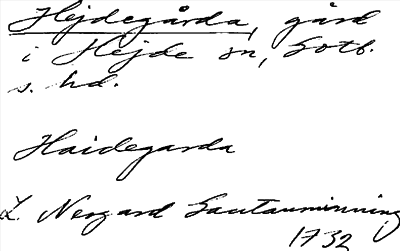 Hejdegårda, gård
i Hejde sn, Gotl.
s. hd.
Haidegarda
L. Nergard Gautauminning
1732